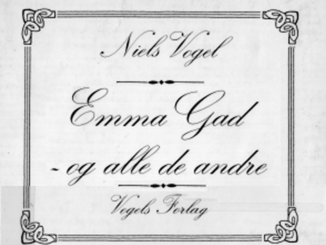 Niels Vogel
Emma Gad
- og alle de andre
Vogels Forlag